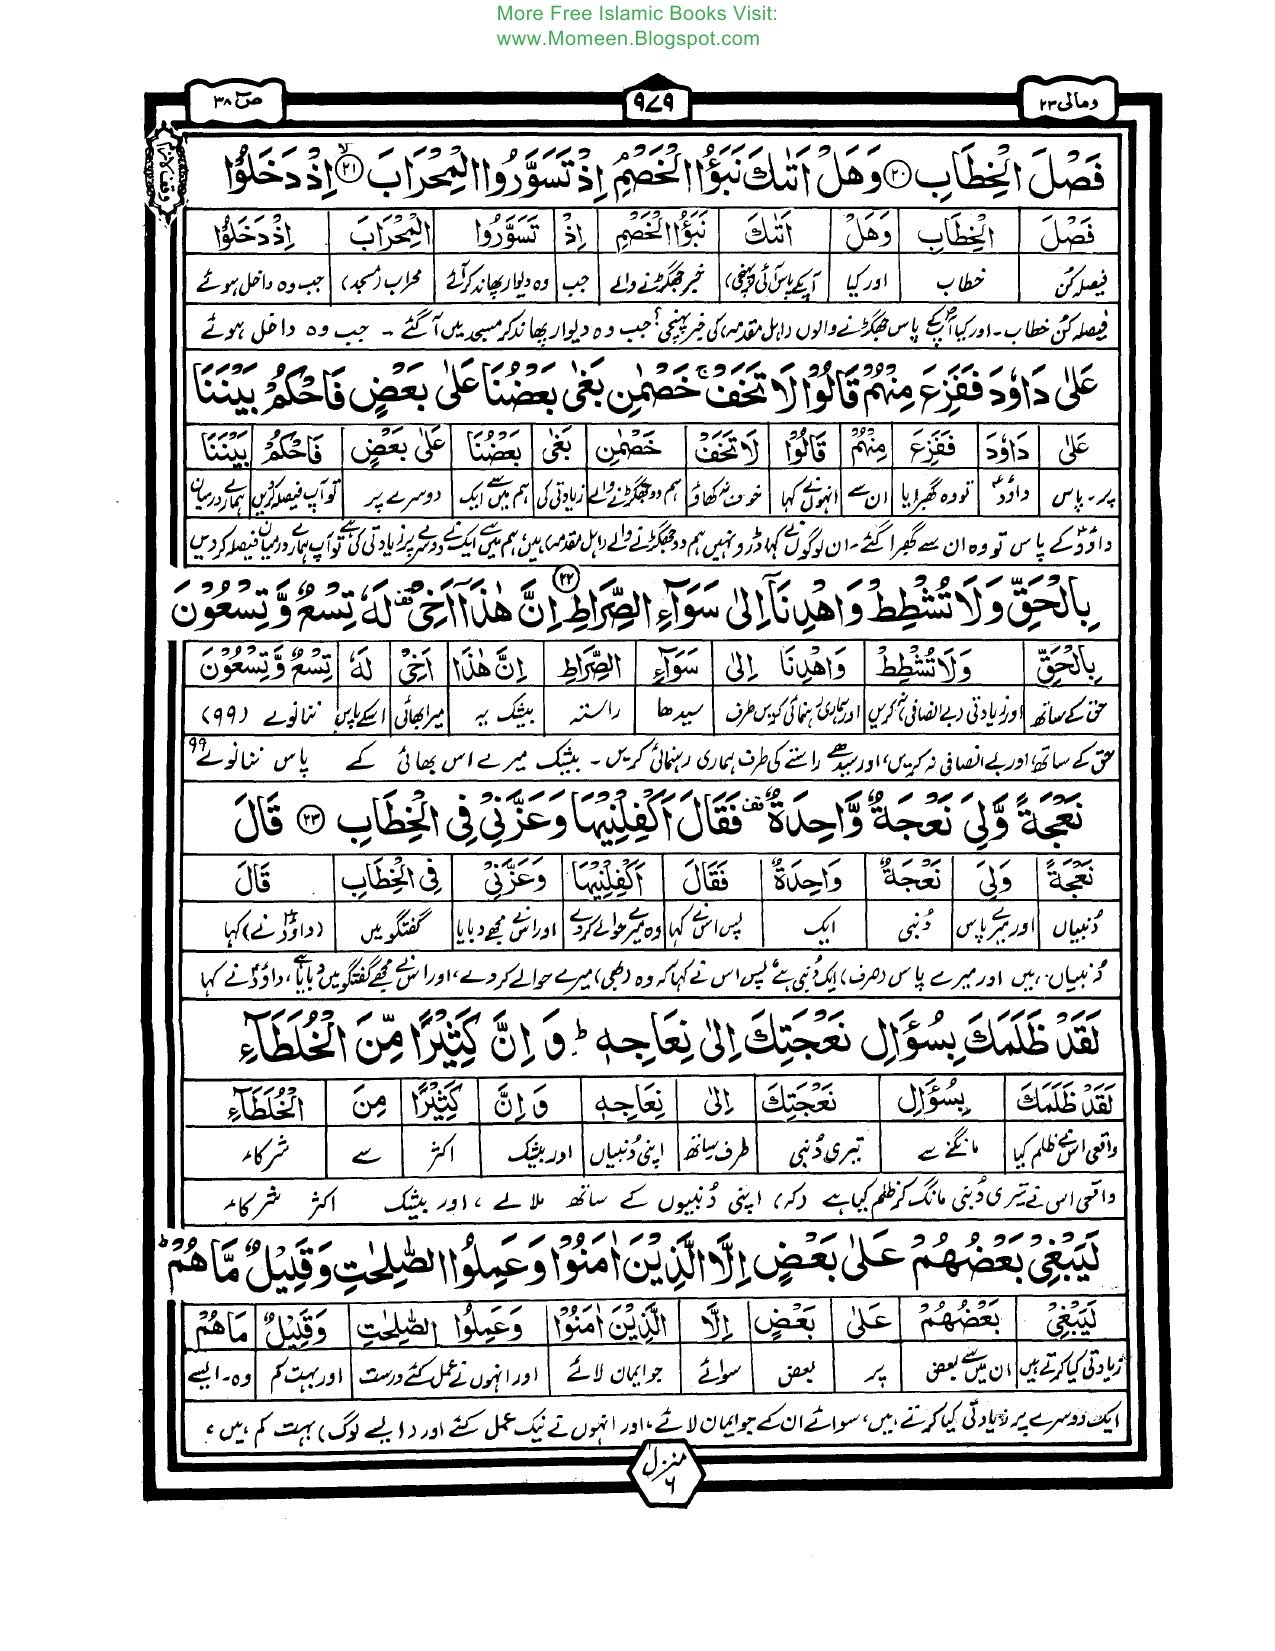 More Free Islamic Books Visit:
www.Momeen.Blogspot.com
ومالی ۲۳
۹۷۹
صٓ ۳۸
فَصْلَ الْخِطَابِ ۲۰ وَهَلْ اَتٰىكَ نَبَؤُا الْخَصْمِ اِذْ تَسَوَّرُوا الْمِحْرَابَ ۲۱ اِذْ دَخَلُوْا
فَصْلَ الْخِطَابِ وَهَلْ اَتٰىكَ نَبَؤُا الْخَصْمِ اِذْ تَسَوَّرُوا الْمِحْرَابَ اِذْ دَخَلُوْا
فیصلہ کن خطاب اور کیا آپکے پاس آئی (پہنچی) خبر جھگڑنے والے جب وہ دیوار پھاند کر آئے محراب (مسجد) جب وہ داخل ہوئے
فیصلہ کن خطاب۔ اور کیا آپ کے پاس جھگڑنے والوں (اہل مقدمہ) کی خبر پہنچی؟ جب وہ دیوار پھاند کر مسجد میں آ گئے ۔ جب وہ داخل ہوئے
عَلٰى دَاوٗدَ فَفَزِعَ مِنْهُمْ قَالُوْا لَا تَخَفْ ۚ خَصْمٰنِ بَغٰى بَعْضُنَا عَلٰى بَعْضٍ فَاحْكُمْ بَيْنَنَا
عَلٰى دَاوٗدَ فَفَزِعَ مِنْهُمْ قَالُوْا لَا تَخَفْ خَصْمٰنِ بَغٰى بَعْضُنَا عَلٰى بَعْضٍ فَاحْكُمْ بَيْنَنَا
پر۔ پاس داوٗدؑ تو وہ گھبرایا ان سے انہوں نے کہا خوف نہ کھاؤ ہم دو جھگڑنے والے زیادتی کی ہم میں سے ایک دوسرے پر تو آپ فیصلہ کردیں ہمارے درمیان
داوٗدؑ کے پاس تو وہ ان سے گھبرا گئے۔ ان لوگوں نے کہا ڈرو نہیں ہم دو جھگڑنے والے (اہل مقدمہ) ہیں، ہم میں سے ایک نے دوسرے پر زیادتی کی ہے تو آپ ہمارے درمیان فیصلہ کر دیں
بِالْحَقِّ وَلَا تُشْطِطْ وَاهْدِنَآ اِلٰى سَوَآءِ الصِّرَاطِ ۲۲ اِنَّ هٰذَآ اَخِيْ ۫ لَهٗ تِسْعٌ وَّتِسْعُوْنَ
بِالْحَقِّ وَلَا تُشْطِطْ وَاهْدِنَا اِلٰى سَوَآءِ الصِّرَاطِ اِنَّ هٰذَا اَخِيْ لَهٗ تِسْعٌ وَّتِسْعُوْنَ
حق کے ساتھ اور زیادتی (بے انصافی) نہ کریں اور ہماری رہنمائی کریں طرف سیدھا راستہ بیشک یہ میرا بھائی اسکے پاس ننانوے (۹۹)
حق کے ساتھ، اور بے انصافی نہ کریں، اور سیدھے راستے کی طرف ہماری رہنمائی کریں ۔ بیشک میرے اس بھائی کے پاس ننانوے ۹۹
نَعْجَةً وَّلِيَ نَعْجَةٌ وَّاحِدَةٌ ۫ فَقَالَ اَكْفِلْنِيْهَا وَعَزَّنِيْ فِي الْخِطَابِ ۲۳ قَالَ
نَعْجَةً وَلِيَ نَعْجَةٌ وَاحِدَةٌ فَقَالَ اَكْفِلْنِيْهَا وَعَزَّنِيْ فِي الْخِطَابِ قَالَ
دُنبیاں اور میرے پاس دُنبی ایک پس اس نے کہا وہ میرے حوالے کردے اور اس نے مجھے دبایا گفتگو میں (داوٗدؑ نے) کہا
دُنبیاں ہیں اور میرے پاس (صرف) ایک دُنبی ہے پس اس نے کہا کہ وہ (بھی) میرے حوالے کر دے، اور اس نے مجھے گفتگو میں دبایا ہے، داوٗدؑ نے کہا
لَقَدْ ظَلَمَكَ بِسُؤَالِ نَعْجَتِكَ اِلٰى نِعَاجِهٖ ؕ وَ اِنَّ كَثِيْرًا مِّنَ الْخُلَطَآءِ
لَقَدْ ظَلَمَكَ بِسُؤَالِ نَعْجَتِكَ اِلٰى نِعَاجِهٖ وَ اِنَّ كَثِيْرًا مِنَ الْخُلَطَآءِ
واقعی اس نے ظلم کیا مانگنے سے تیری دُنبی طرف۔ ساتھ اپنی دُنبیاں اور بیشک اکثر سے شرکاء
واقعی اس نے تیری دُنبی مانگ کر ظلم کیا ہے (کہ) اپنی دُنبیوں کے ساتھ ملا لے ، اور بیشک اکثر شرکاء
لَيَبْغِيْ بَعْضُهُمْ عَلٰى بَعْضٍ اِلَّا الَّذِيْنَ اٰمَنُوْا وَعَمِلُوا الصّٰلِحٰتِ وَقَلِيْلٌ مَّا هُمْ ؕ
لَيَبْغِيْ بَعْضُهُمْ عَلٰى بَعْضٍ اِلَّا الَّذِيْنَ اٰمَنُوْا وَعَمِلُوا الصّٰلِحٰتِ وَقَلِيْلٌ مَا هُمْ
زیادتی کیا کرتے ہیں ان میں سے بعض پر بعض سوائے جو ایمان لائے اور انہوں نے عمل کئے درست اور بہت کم وہ۔ ایسے
ایک دوسرے پر زیادتی کیا کرتے ہیں، سوائے ان کے جو ایمان لائے، اور انہوں نے نیک عمل کئے اور (ایسے لوگ) بہت کم ہیں،
منزل ۶